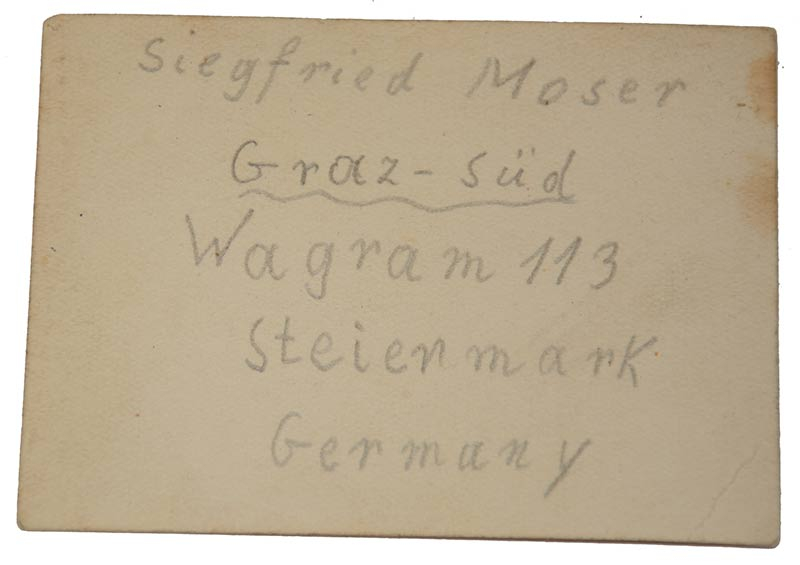 Siegfried Moser
Graz-Süd
Wagram 113
Steiermark
Germany